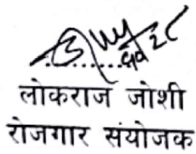 लोकराज जोशी
रोजगार संयोजक